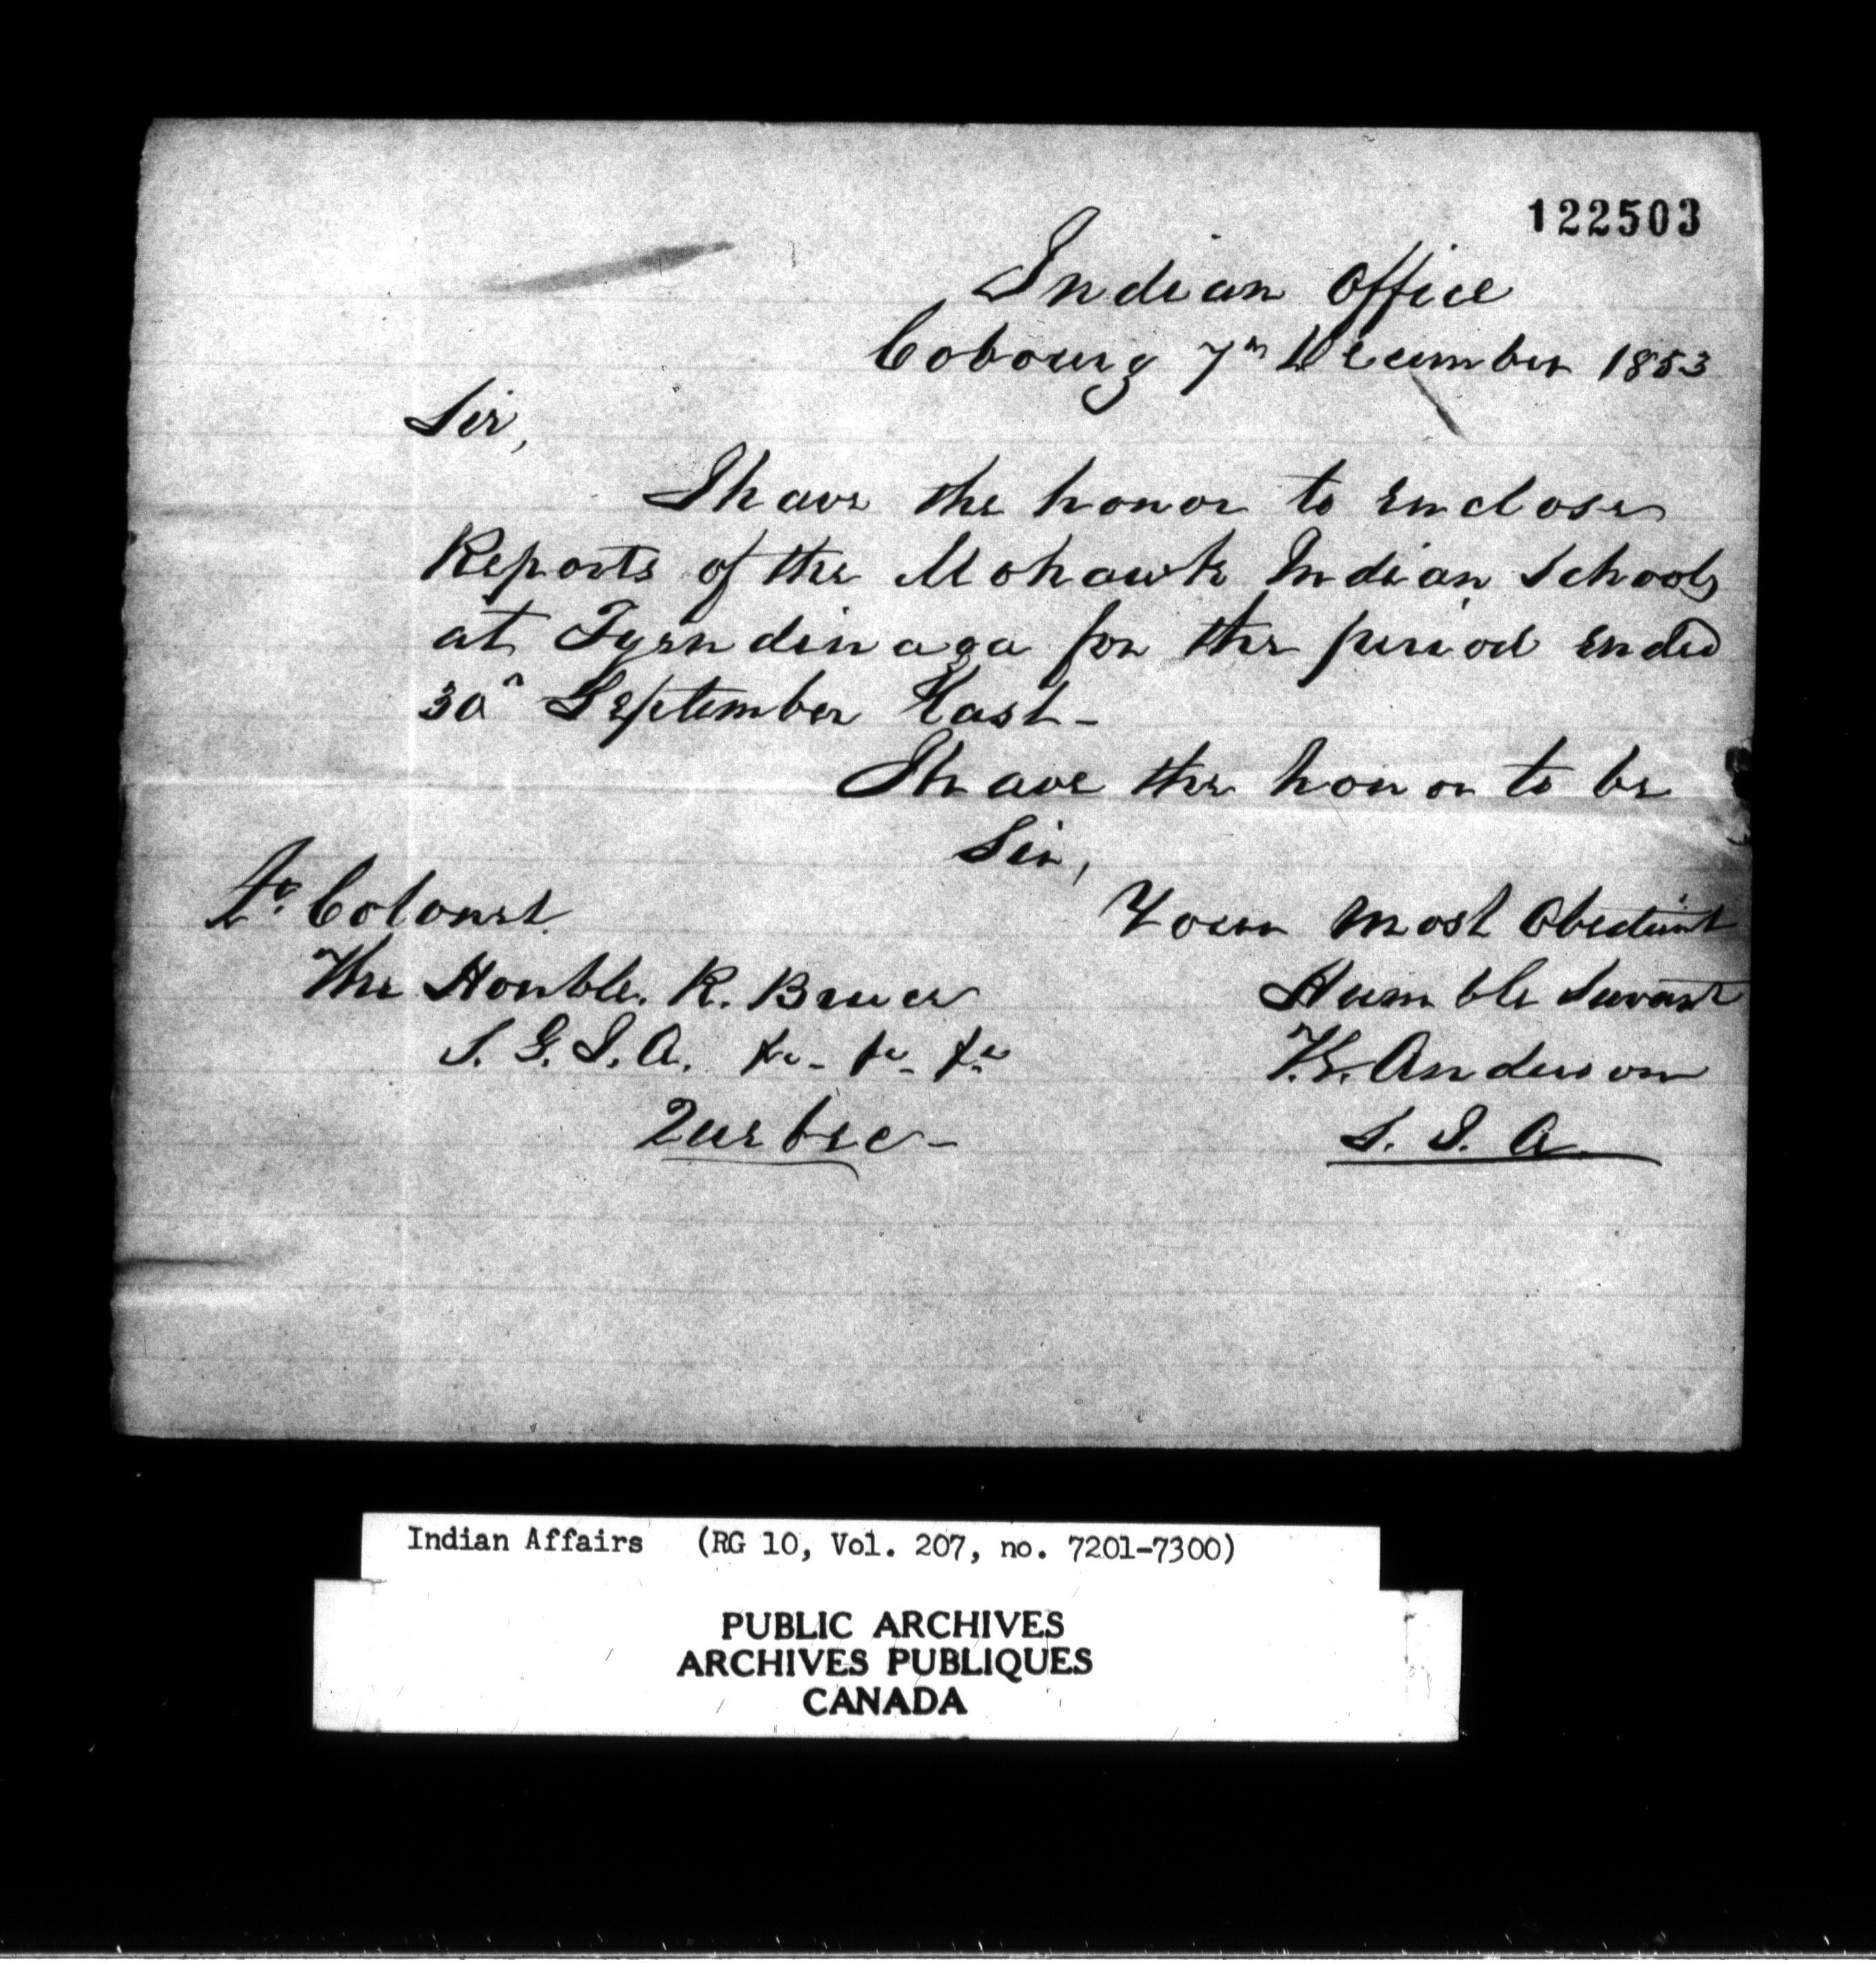 122503
Indian Office
Cobourg 7th December 1853
Sir,
I have the honor to enclose
Reports of the Mohawk Indian Schools
at Tyendinaga for the period ended
30th September last -
I have the honor to be
Sir,
Your most Obedient
Humble Servant
T.G. Anderson
S. I. A.
Lt. Colonel
The Honble. R. Bruce
S. G. I. A. &c - &c - &c
Quebec -
Indian Affairs (RG 10, Vol. 207, no. 7201-7300)
PUBLIC ARCHIVES
ARCHIVES PUBLIQUES
CANADA